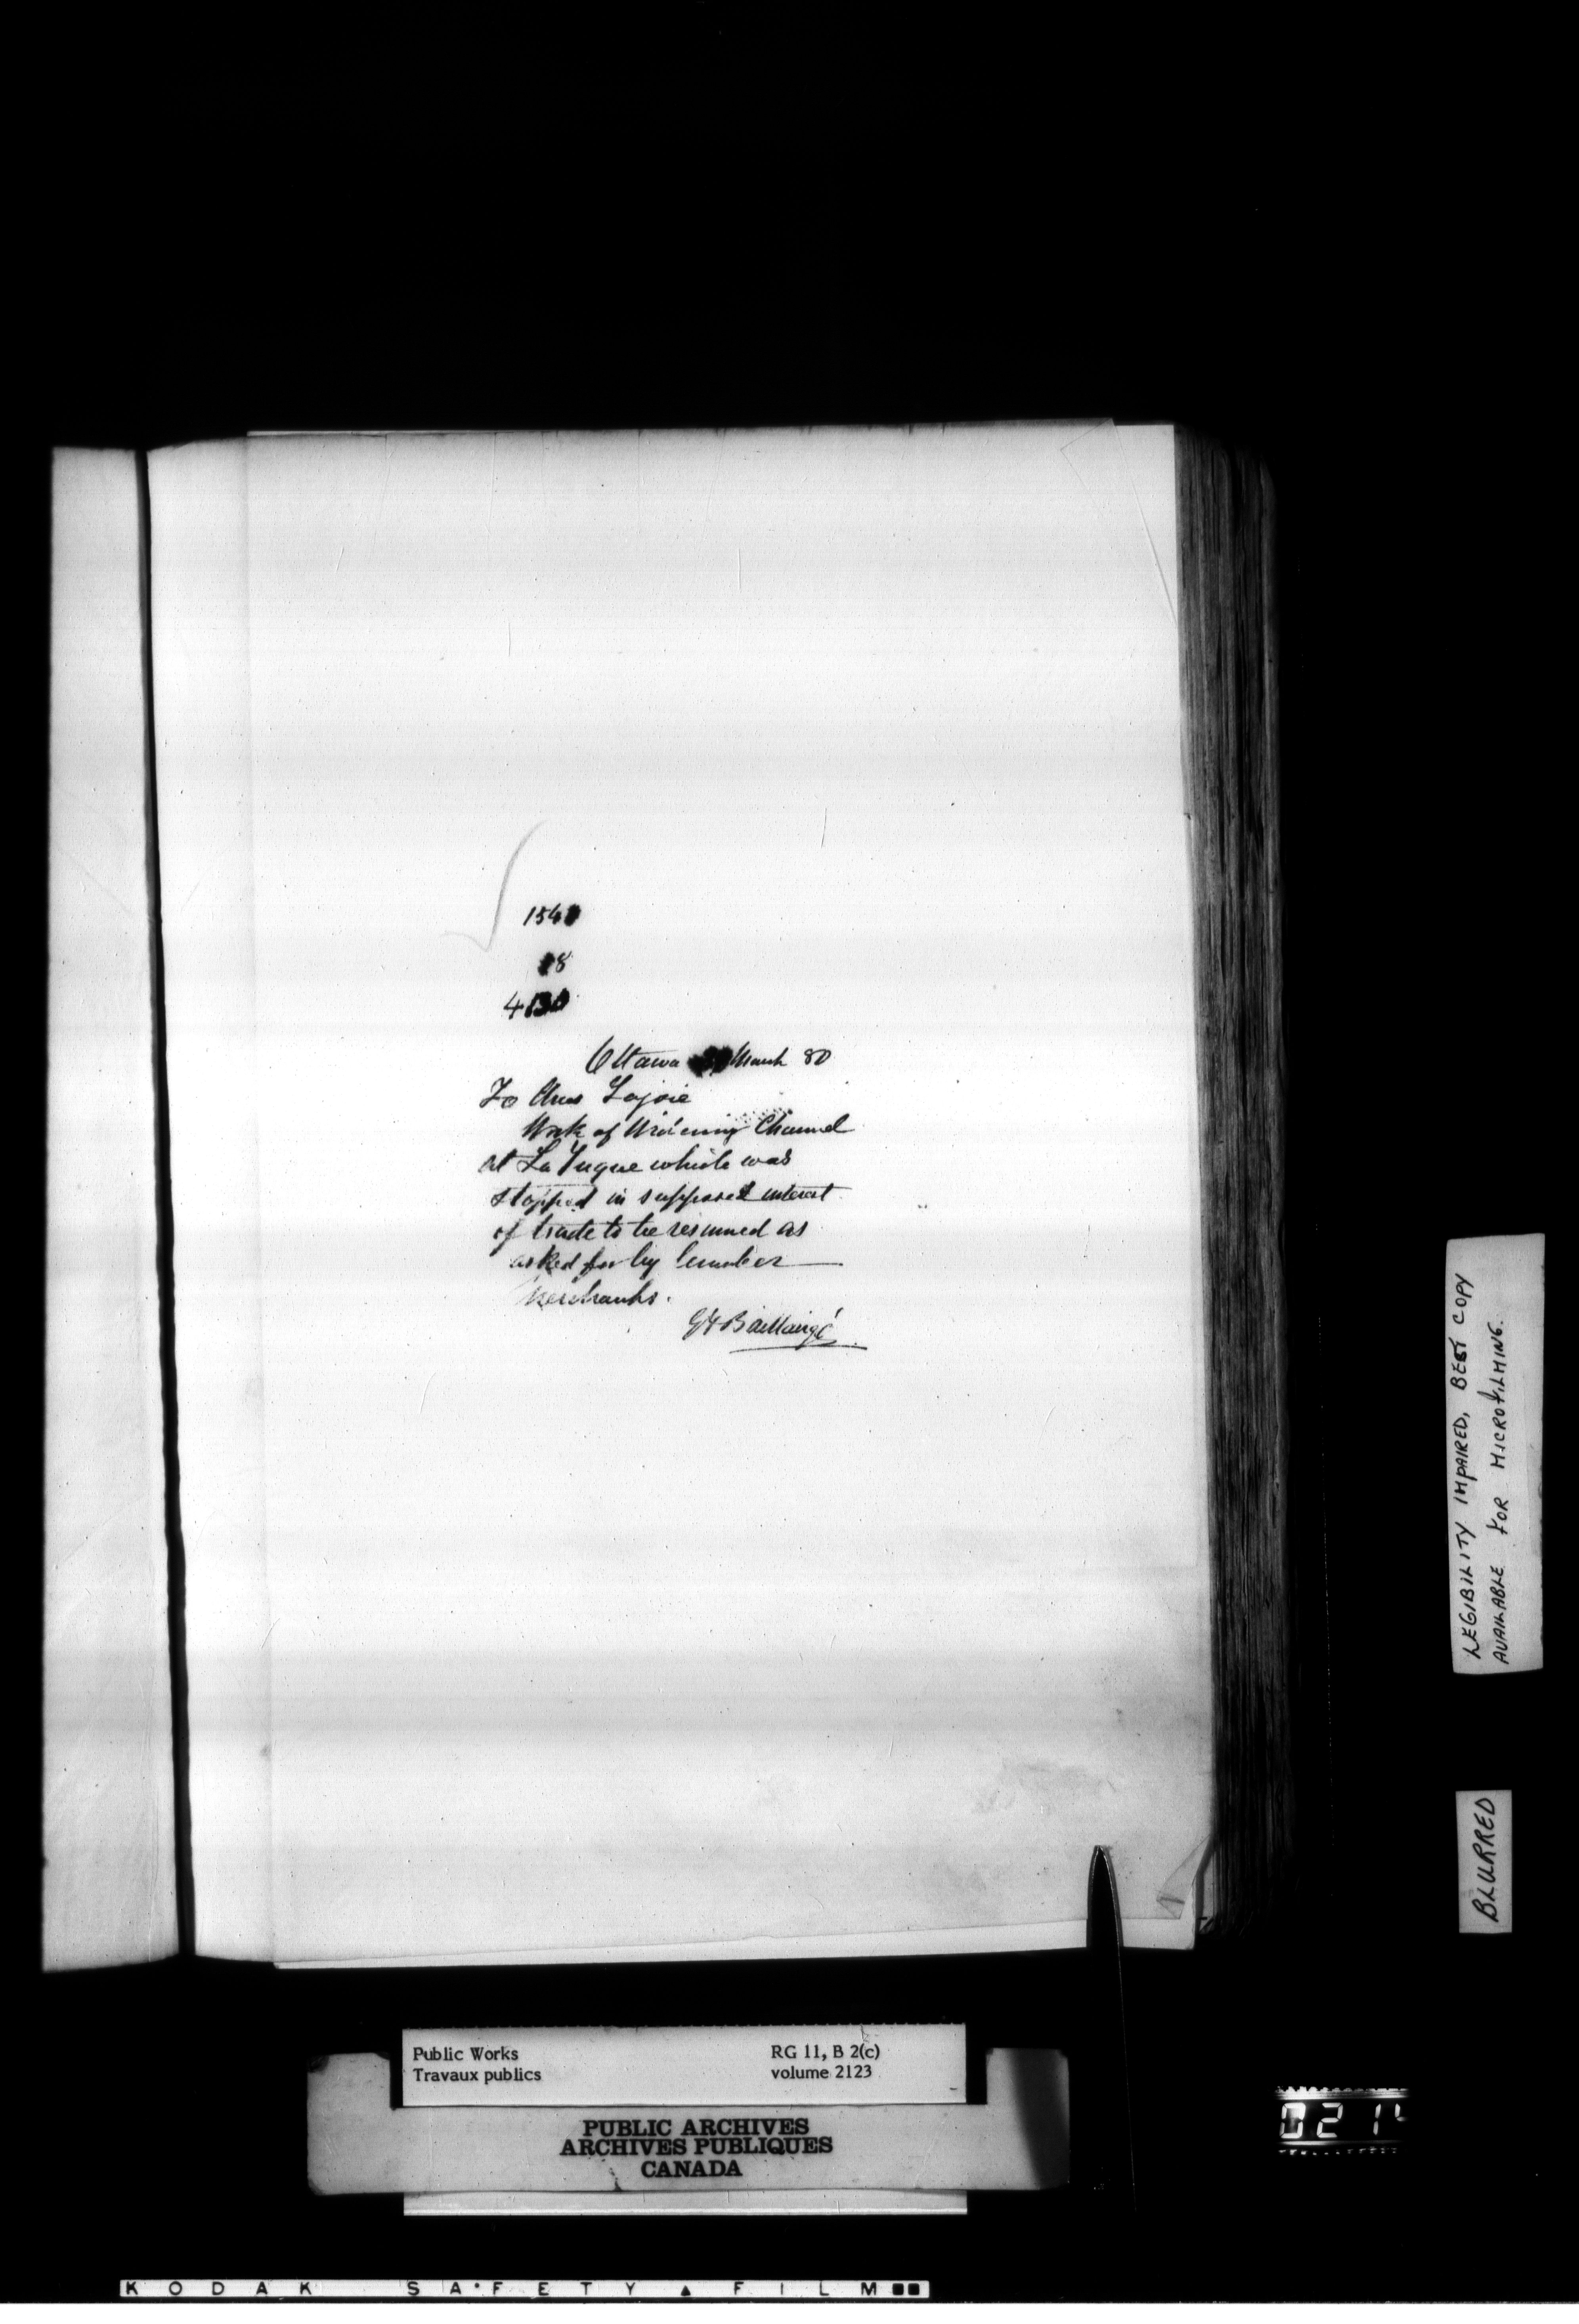 154
8
4
Ottawa March 80
To Chas Lajoie
Work of Widening Channel
at La Tuque which was
stopped in supposed interest
of trade to be resumed as
asked for by lumber
Merchants.
G F Baillairgé
LEGIBILITY IMPAIRED, BEST COPY
AVAILABLE FOR MICROFILMING.
BLURRED
Public Works RG 11, B 2(c)
Travaux publics volume 2123
PUBLIC ARCHIVES
ARCHIVES PUBLIQUES
CANADA
021
KODAK SAFETY FILM